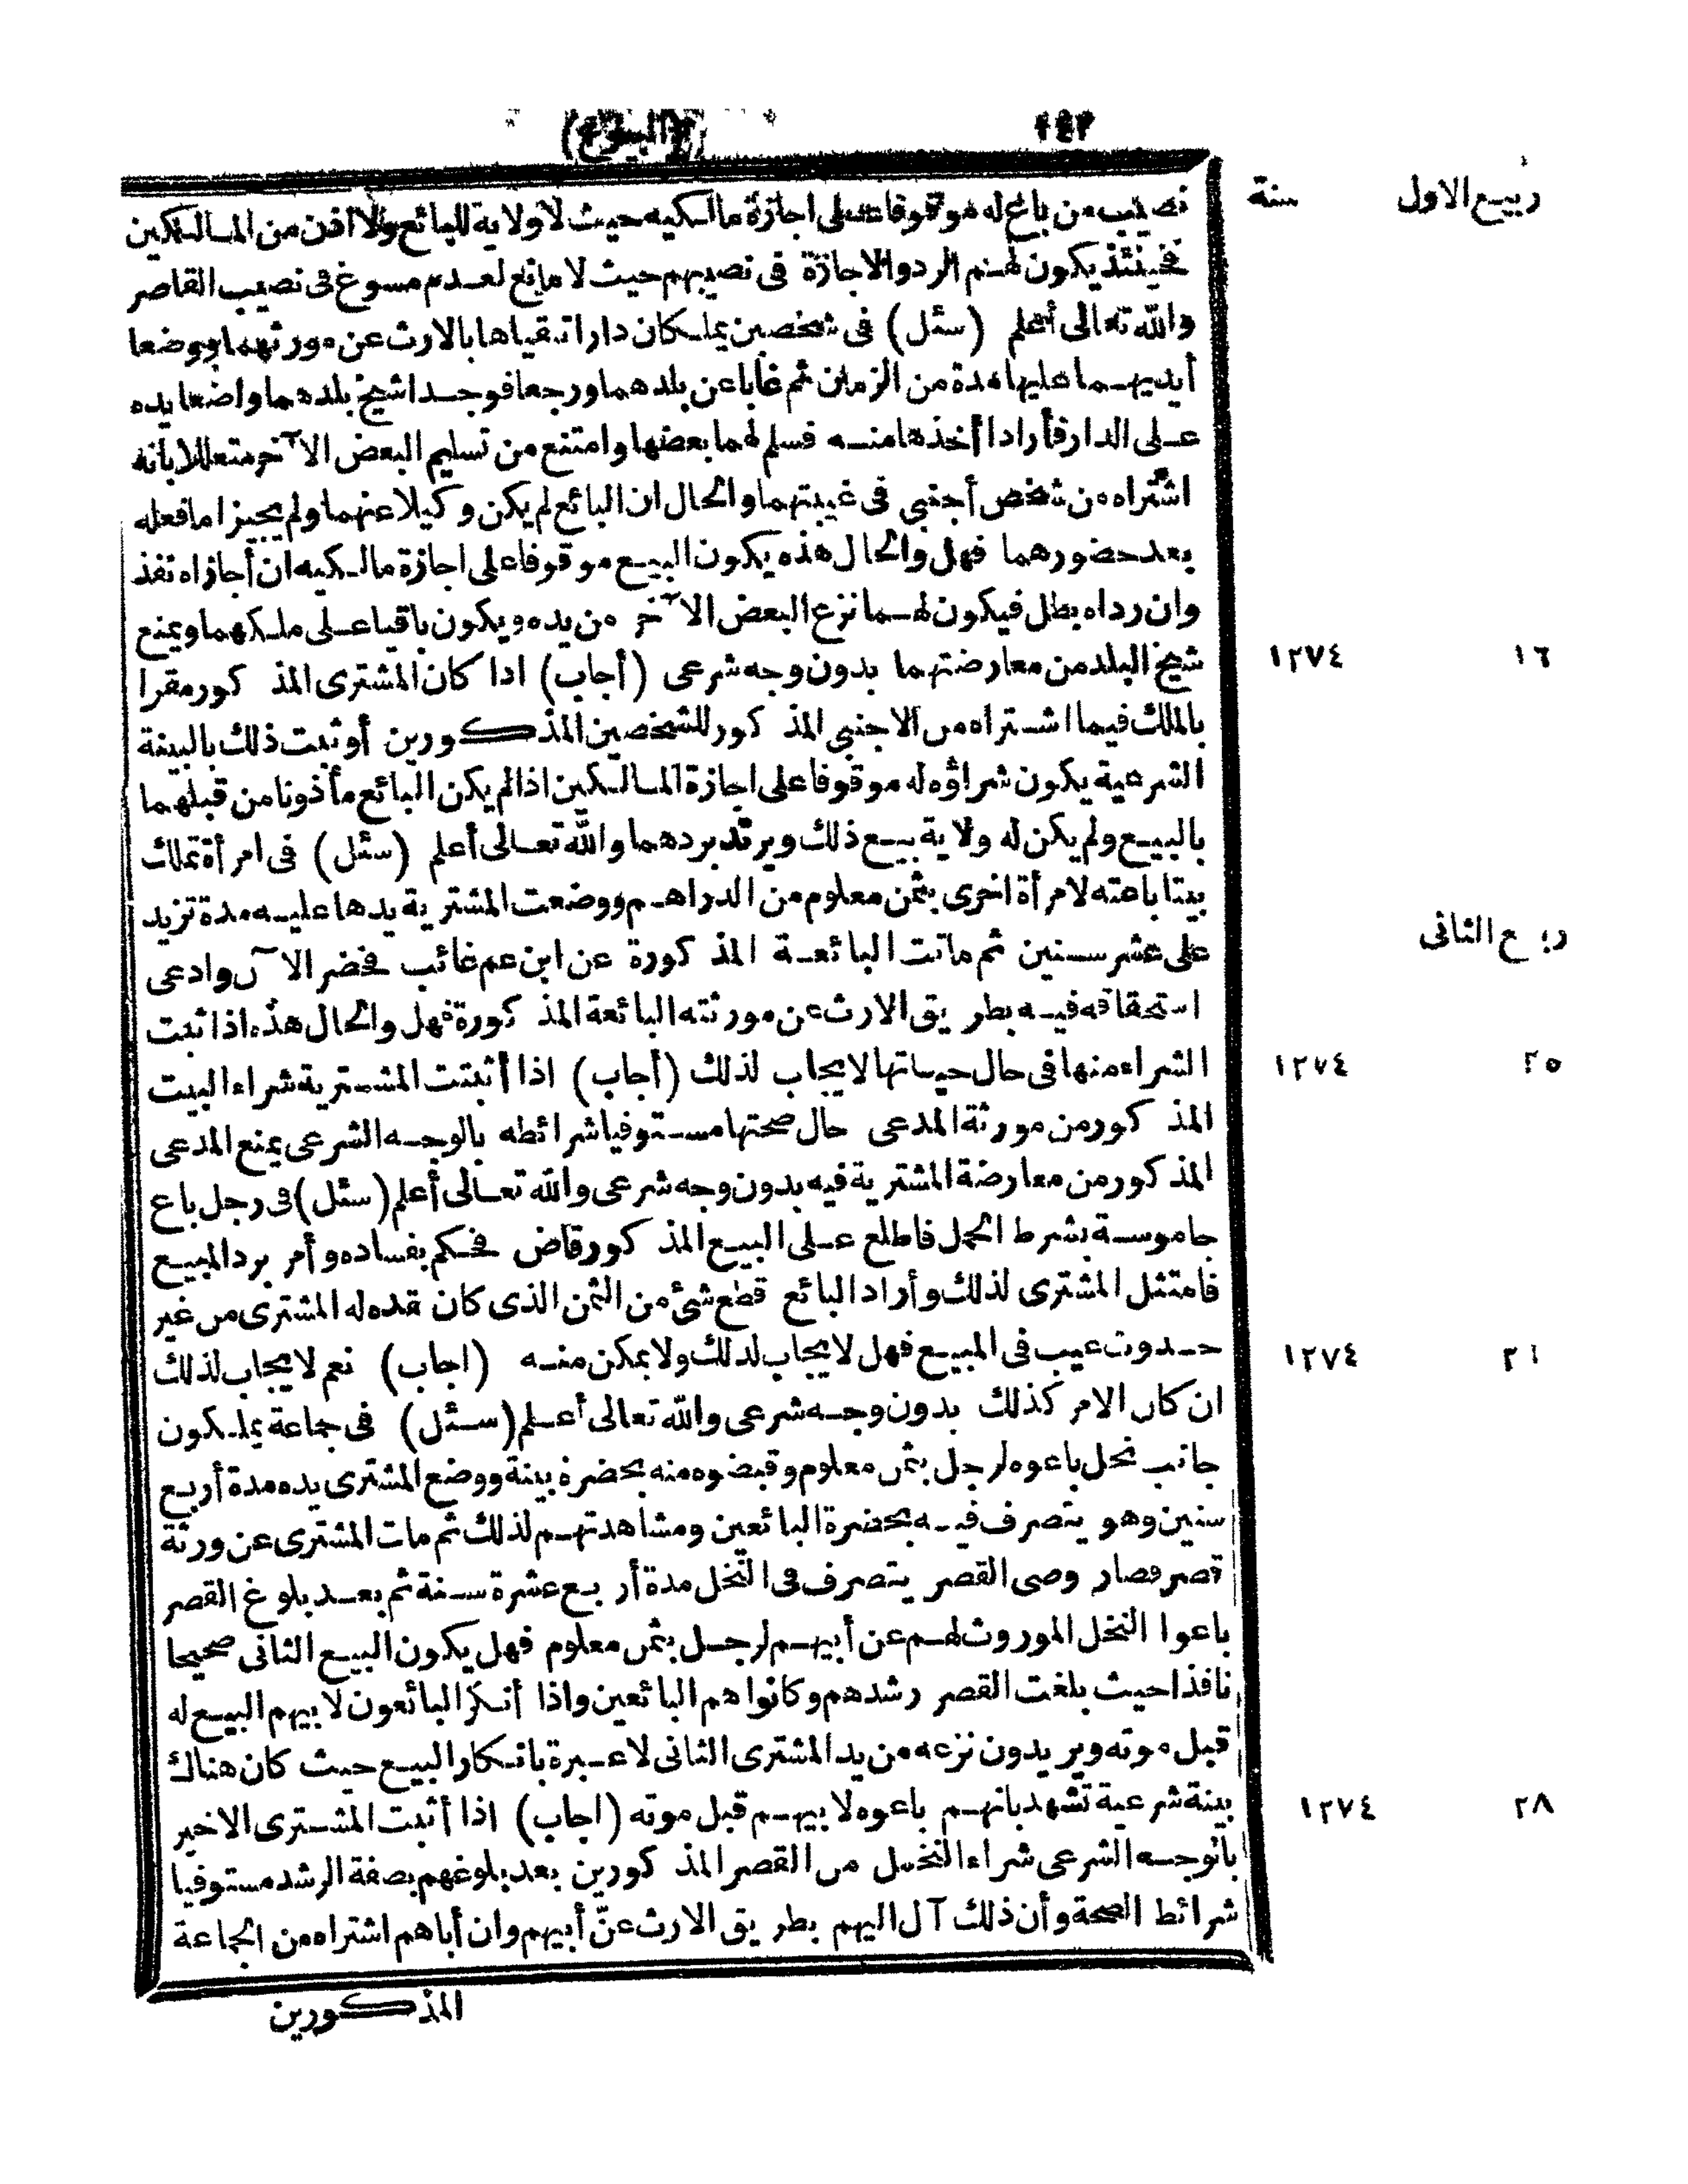 (البيوع)
ربيع الاول سنة
نصيب من باغ له موقوفا على اجازة مالكيه حيث لا ولاية للبائع ولا اذن من المالكين
فحينئذ يكون لهم الرد والاجازة فى نصيبهم حيث لا مانع لعدم مسوغ فى نصيب القاصر
والله تعالى أعلم (سئل) فى شخصين يملكان دارا تلقياها بالارث عن مورثهما ووضعا
أيديهما عليها مدة من الزمان ثم غابا عن بلدهما ورجعا فوجدا شيخ بلدهما واضعا يده
على الدار فأرادا أخذها منه فسلم لهما بعضها وامتنع من تسليم البعض الآخر متعللا بانه
اشتراه من شخص أجنبى فى غيبتهما والحال ان البائع لم يكن وكيلا عنهما ولم يجيزا ما فعله
بعد حضورهما فهل والحال هذه يكون البيع موقوفا على اجازة مالكيه ان أجازاه نفذ
وان رداه بطل فيكون لهما نزع البعض الآخر من يده ويكون باقيا على ملكهما ويمنع
شيخ البلد من معارضتهما بدون وجه شرعى (أجاب) اذا كان المشترى المذكور مقرا
١٦ ١٢٧٤
بالملك فيما اشتراه من الاجنبى المذكور للشخصين المذكورين أو ثبت ذلك بالبينة
الشرعية يكون شراؤه له موقوفا على اجازة المالكين اذا لم يكن البائع مأذونا من قبلهما
بالبيع ولم يكن له ولاية بيع ذلك ويرتد بردهما والله تعالى أعلم (سئل) فى امرأة تملك
بيتا باعته لامرأة اخرى بثمن معلوم من الدراهم ووضعت المشترية يدها عليه مدة تزيد
ربيع الثانى
على عشر سنين ثم ماتت البائعة المذكورة عن ابن عم غائب فحضر الآن وادعى
استحقاقه فيه بطريق الارث عن مورثته البائعة المذكورة فهل والحال هذه اذا ثبت
الشراء منها فى حال حياتها لا يجاب لذلك (أجاب) اذا أثبتت المشترية شراء البيت
٢٥ ١٢٧٤
المذكور من مورثة المدعى حال صحتها مستوفيا شرائطه بالوجه الشرعى يمنع المدعى
المذكور من معارضة المشترية فيه بدون وجه شرعى والله تعالى أعلم (سئل) فى رجل باع
جاموسة بشرط الحمل فاطلع على البيع المذكور قاض فحكم بفساده وأمر برد المبيع
فامتثل المشترى لذلك وأراد البائع قطع شئ من الثمن الذى كان نقده له المشترى من غير
حدوث عيب فى المبيع فهل لا يجاب لذلك ولا يمكن منه (اجاب) نعم لا يجاب لذلك
١٢٧٤
ان كان الامر كذلك بدون وجه شرعى والله تعالى أعلم (سئل) فى جماعة يملكون
جانب نخل باعوه لرجل بثمن معلوم وقبضوه منه بحضرة بينة ووضع المشترى يده مدة أربع
سنين وهو يتصرف فيه بحضرة البائعين ومشاهدتهم لذلك ثم مات المشترى عن ورثة
قصر فصار وصى القصر يتصرف فى النخل مدة أربع عشرة سنة ثم بعد بلوغ القصر
باعوا النخل الموروث لهم عن أبيهم لرجل بثمن معلوم فهل يكون البيع الثانى صحيحا
نافذا حيث بلغت القصر رشدهم وكانوا هم البائعين واذا أنكر البائعون لابيهم البيع له
قبل موته ويريدون نزعه من يد المشترى الثانى لا عبرة بانكار البيع حيث كان هناك
بينة شرعية تشهد بانهم باعوه لابيهم قبل موته (اجاب) اذا أثبت المشترى الاخير
٢٨ ١٢٧٤
بالوجه الشرعى شراء النخل من القصر المذكورين بعد بلوغهم بصفة الرشد مستوفيا
شرائط الصحة وأن ذلك آل اليهم بطريق الارث عن أبيهم وان أباهم اشتراه من الجماعة
المذكورين